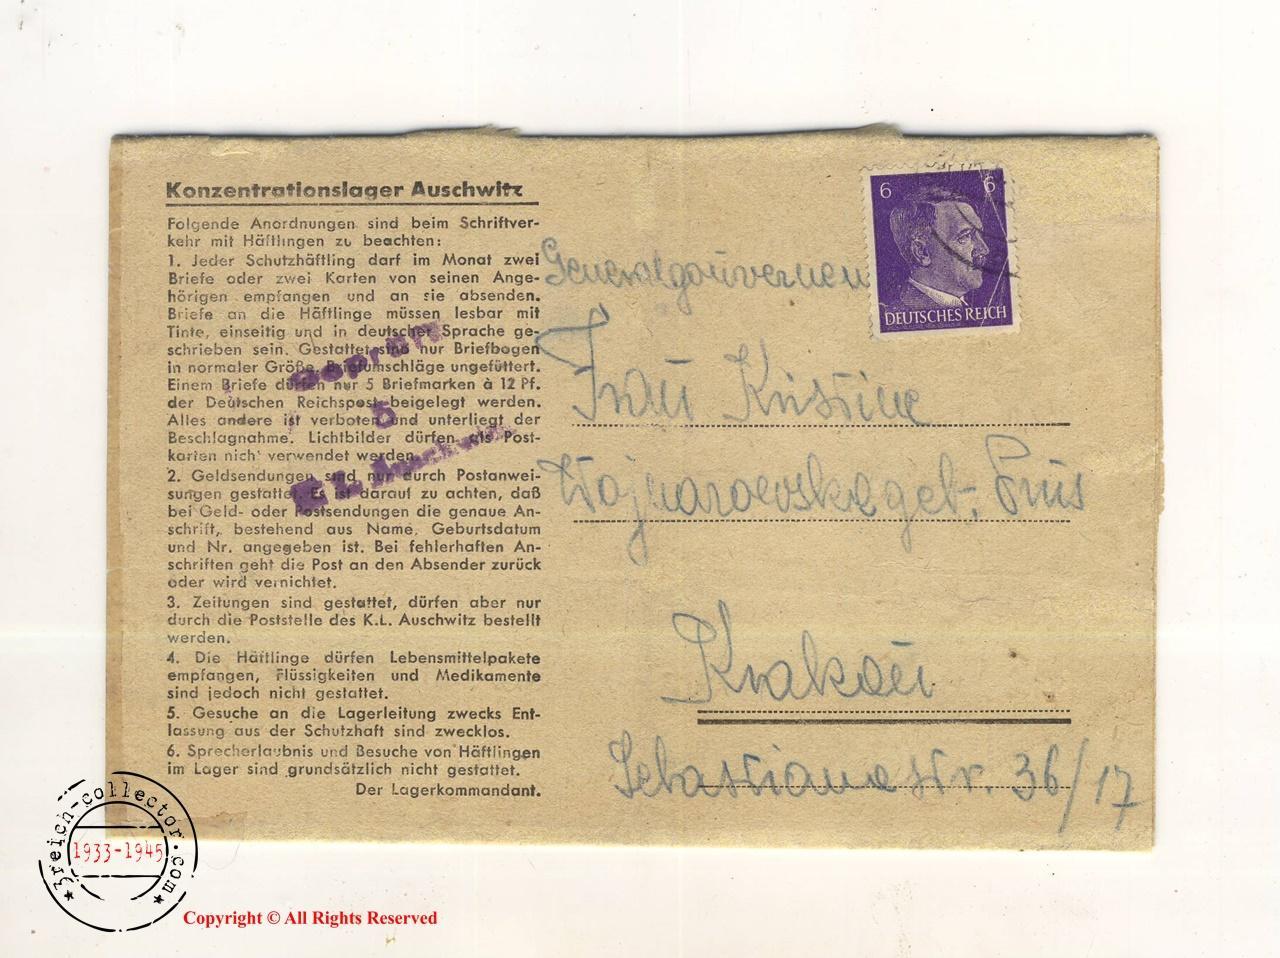 Konzentrationslager Auschwitz
Folgende Anordnungen sind beim Schriftver-
kehr mit Häftlingen zu beachten:
1. Jeder Schutzhäftling darf im Monat zwei
Briefe oder zwei Karten von seinen Ange-
hörigen empfangen und an sie absenden.
Briefe an die Häftlinge müssen lesbar mit
Tinte, einseitig und in deutscher Sprache ge-
schrieben sein. Gestattet sind nur Briefbogen
in normaler Größe, Briefumschläge ungefüttert.
Einem Briefe dürfen nur 5 Briefmarken à 12 Pf.
der Deutschen Reichspost beigelegt werden.
Alles andere ist verboten und unterliegt der
Beschlagnahme. Lichtbilder dürfen als Post-
karten nicht verwendet werden.
2. Geldsendungen sind nur durch Postanwei-
sungen gestattet. Es ist darauf zu achten, daß
bei Geld- oder Postsendungen die genaue An-
schrift, bestehend aus Name, Geburtsdatum
und Nr. angegeben ist. Bei fehlerhaften An-
schriften geht die Post an den Absender zurück
oder wird vernichtet.
3. Zeitungen sind gestattet, dürfen aber nur
durch die Poststelle des K.L. Auschwitz bestellt
werden.
4. Die Häftlinge dürfen Lebensmittelpakete
empfangen, Flüssigkeiten und Medikamente
sind jedoch nicht gestattet.
5. Gesuche an die Lagerleitung zwecks Ent-
lassung aus der Schutzhaft sind zwecklos.
6. Sprecherlaubnis und Besuche von Häftlingen
im Lager sind grundsätzlich nicht gestattet.
Der Lagerkommandant.
Geprüft
6
K.L. Auschwitz
6 6
DEUTSCHES REICH
Generalgouvernem
Frau Kristine
geb. Prus
Krakau
Sebastianastr. 36/17
3reich-collector.com
1933-1945
Copyright © All Rights Reserved